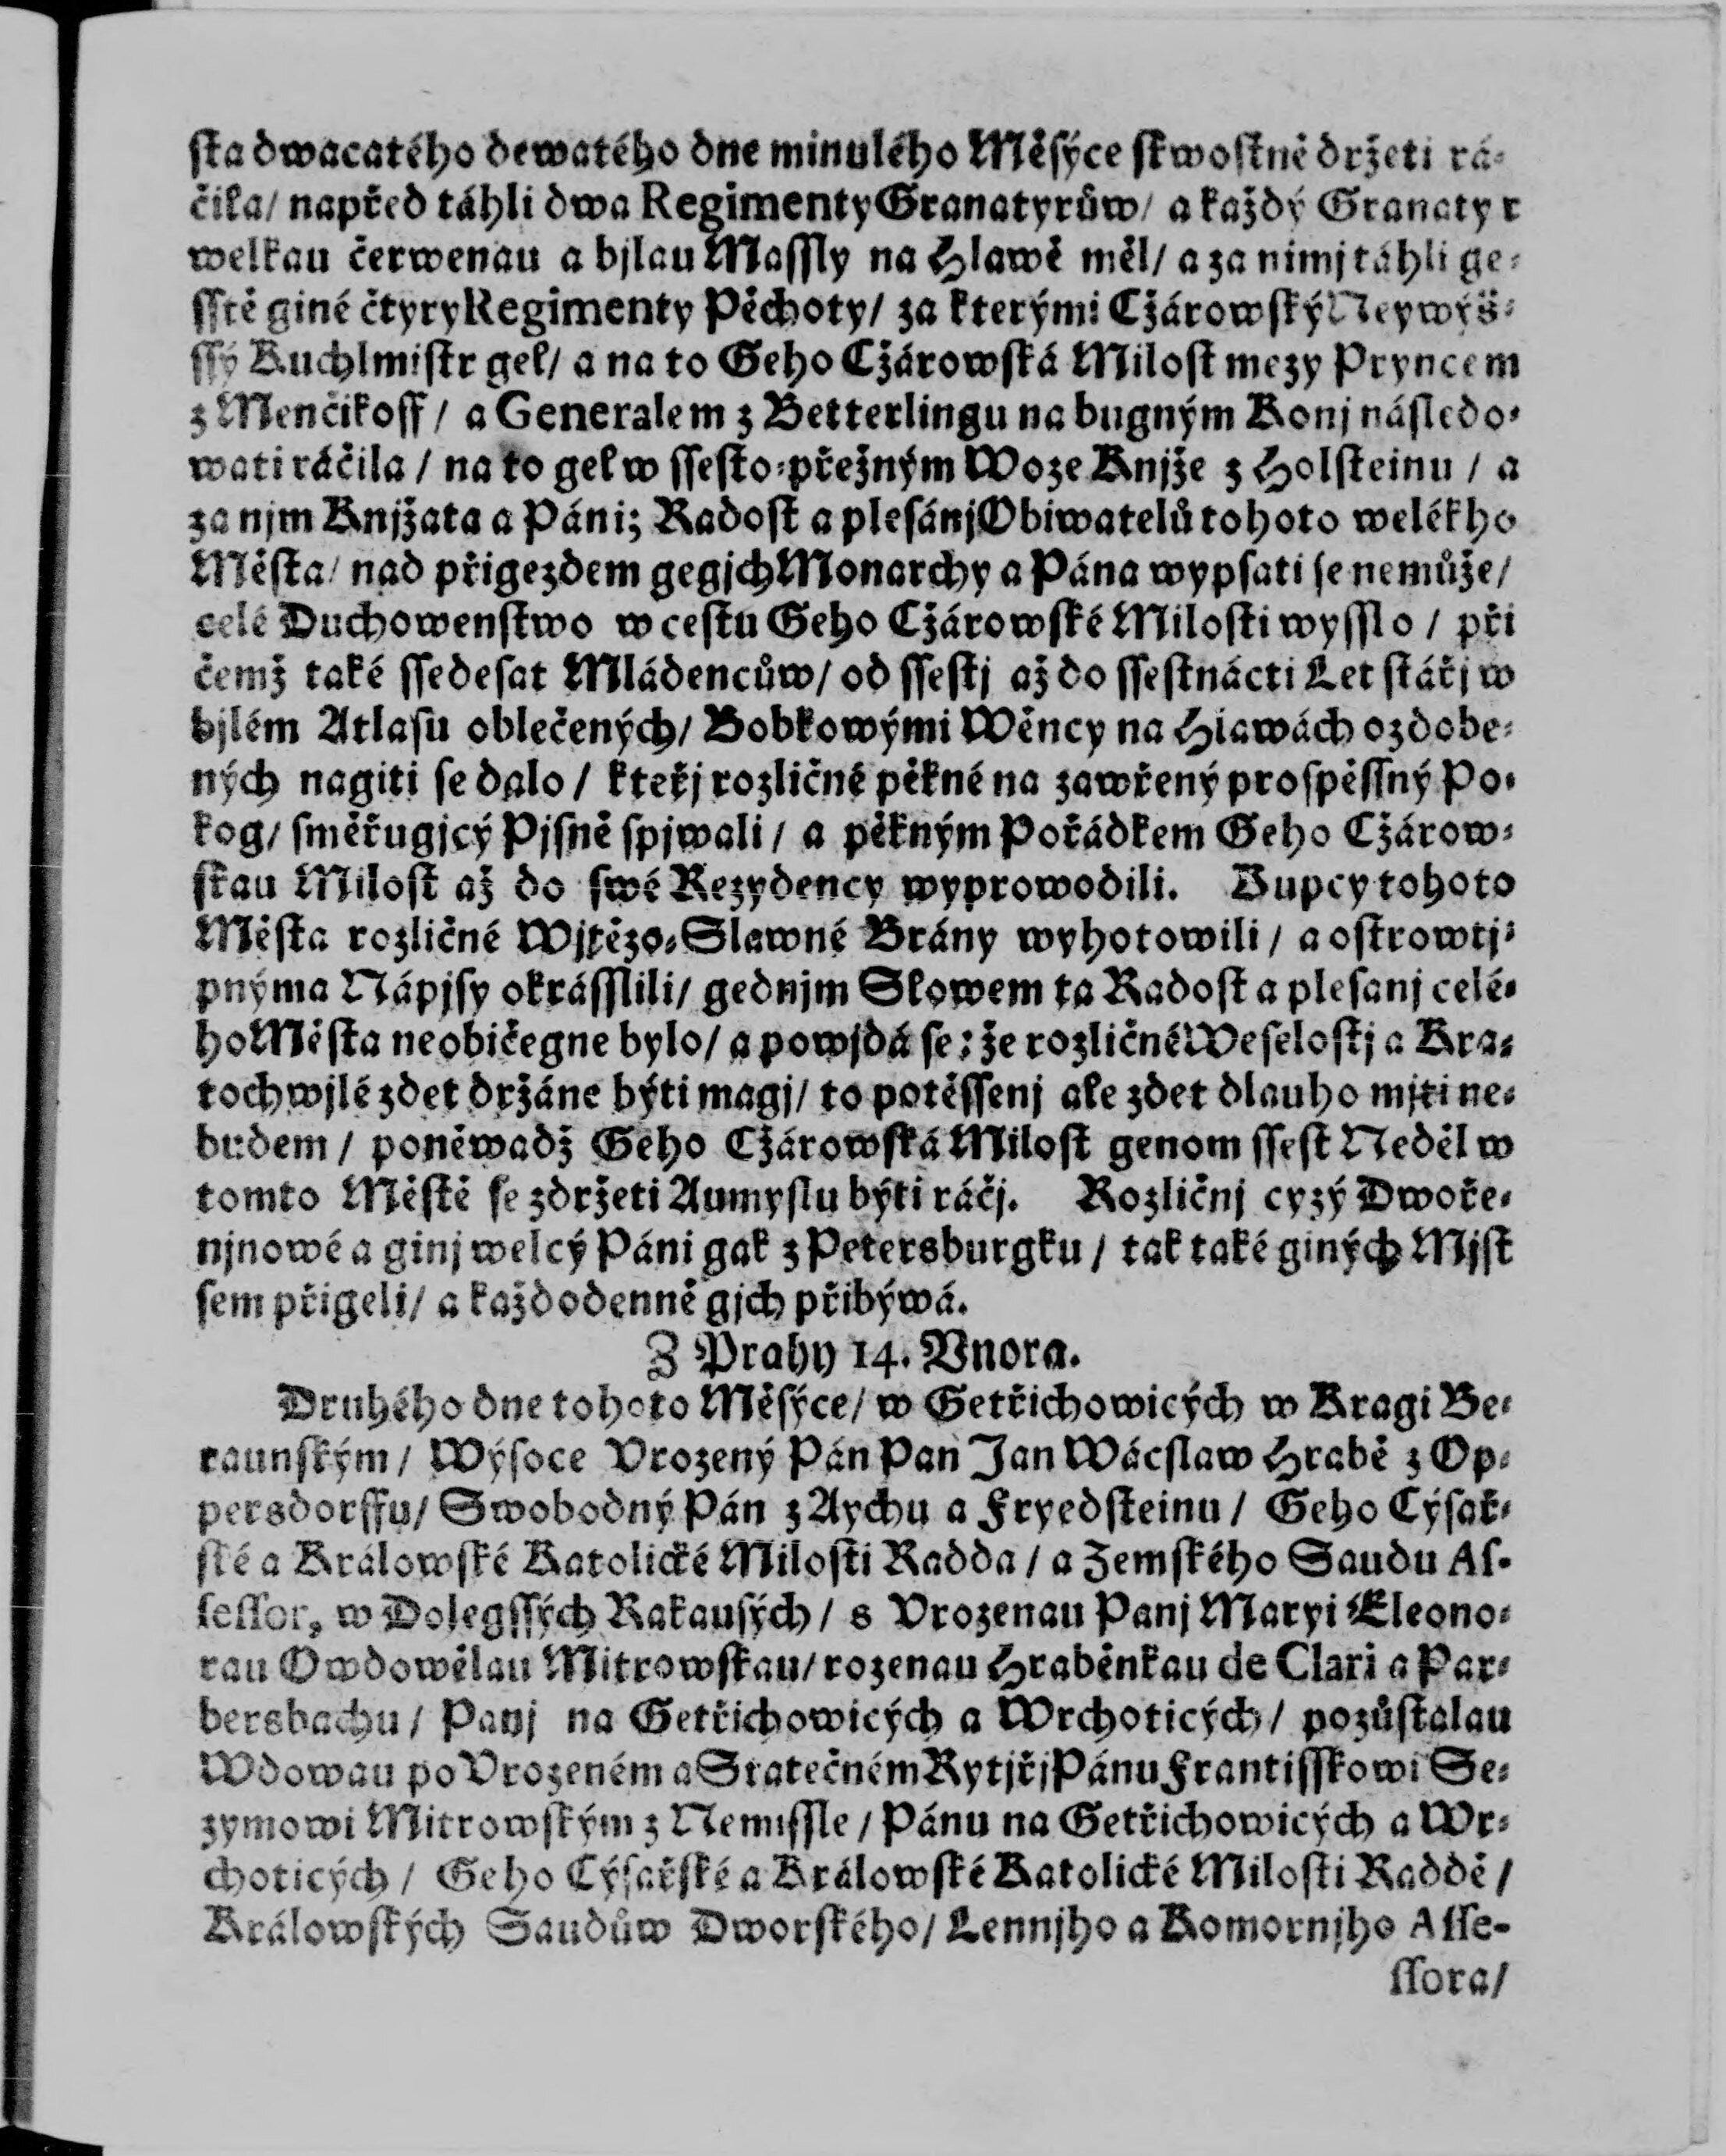 sta dwacatého dewatého dne minulého Měsýce skwostně držeti rá-
čila/ napřed táhli dwa Regimenty Granatyrůw/ a každý Granatyr
welkau čerwenau a bjlau Massly na Hlawě měl/ a za nimj táhli ge-
sstě giné čtyry Regimenty Pěchoty/ za kterými Cžárowský Neywyš-
ssý Kuchlmistr gel/ a na to Geho Cžárowská Milost mezy Pryncem
z Menčikoff/ a Generalem z Betterlingu na bugným Konj následo-
wati ráčila/ na to gel w ssesto-přežným Woze Knjže z Holsteinu/ a
za njm Knjžata a Páni; Radost a plesánj Obiwatelů tohoto welékho
Města/ nad přigezdem gegjch Monarchy a Pána wypsati se nemůže/
celé Duchowenstwo w cestu Geho Cžárowské Milosti wysslo/ při
čemž také ssedesat Mládencůw/ od ssestj až do ssestnácti Let stářj w
bjlém Atlasu oblečených/ Bobkowými Wěncy na Hlawách ozdobe-
ných nagiti se dalo/ kteřj rozličné pěkné na zawřený prospěssný Po-
kog/ směřugjcý Pjsně spjwali/ a pěkným Pořádkem Geho Cžárow-
skau Milost až do swé Rezydency wyprowodili. Kupcy tohoto
Města rozličné Wjtězo-Slawné Brány wyhotowili/ a ostrowtj-
pnýma Nápjsy okrásslili/ gednjm Slowem ta Radost a plesanj celé-
ho Města neobičegne bylo/ a powjdá se; že rozličné Weselostj a Kra-
tochwjlé zdet držáne býti magj/ to potěssenj ale zdet dlauho mjti ne-
budem/ poněwadž Geho Cžárowská Milost genom ssest Neděl w
tomto Městě se zdržeti Aumyslu býti ráčj. Rozličnj cyzý Dwoře-
njnowé a ginj welcý Páni gak z Petersburgku/ tak také giných Mjst
sem přigeli/ a každodenně gjch přibýwá.
Z Prahy 14. Vnora.
Druhého dne tohoto Měsýce/ w Getřichowicých w Kragi Be-
raunským/ Wýsoce Vrozený Pán Pan Jan Wácslaw Hrabě z Op-
persdorffu/ Swobodný Pán z Aychu a Fryedsteinu/ Geho Cýsař-
ské a Králowské Katolické Milosti Radda/ a Zemského Saudu As-
sessor, w Dolegssých Rakausých/ s Vrozenau Panj Maryi Eleono-
rau Owdowělau Mitrowskau/ rozenau Hraběnkau de Clari a Par-
bersbachu/ Panj na Getřichowicých a Wrchoticých/ pozůstalau
Wdowau po Vrozeném a Statečném Rytjřj Pánu Frantisskowi Se-
zymowi Mitrowským z Nemissle/ Pánu na Getřichowicých a Wr-
choticých/ Geho Cýsařské a Králowské Katolické Milosti Raddě/
Králowských Saudůw Dworského/ Lennjho a Komornjho Asse-
ssora/